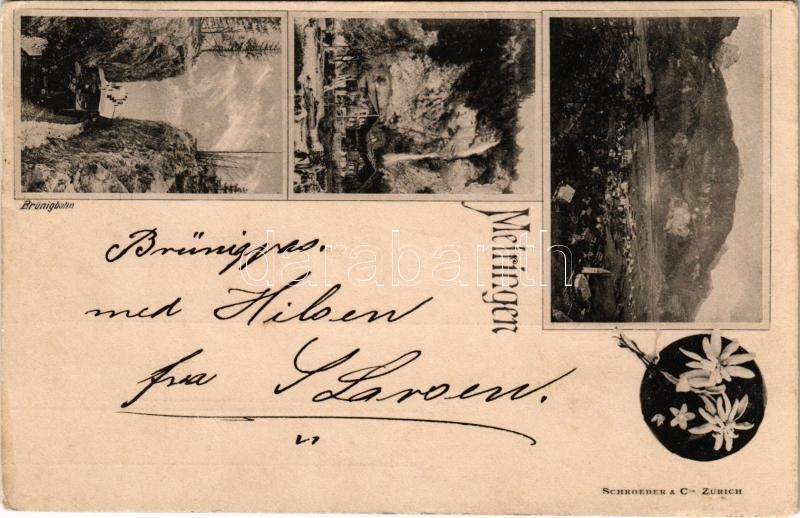 Brünigbahn
Meiringen
Brünigpas.
med Hilsen
fra S Larsen.
darabanth
SCHROEDER & Cie ZÜRICH